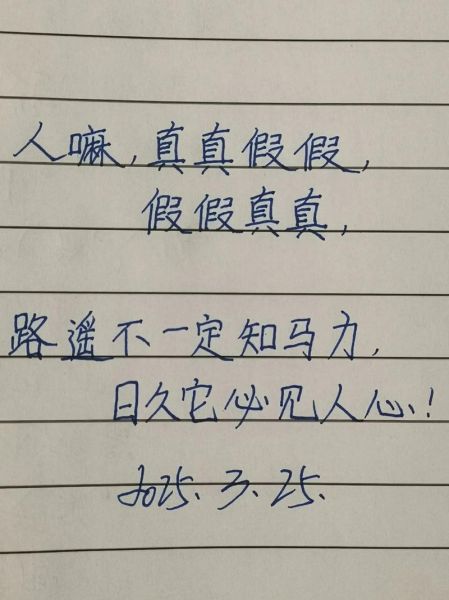 人嘛，真真假假，
假假真真，
路遥不一定知马力，
日久它必见人心！
2025.3.25.